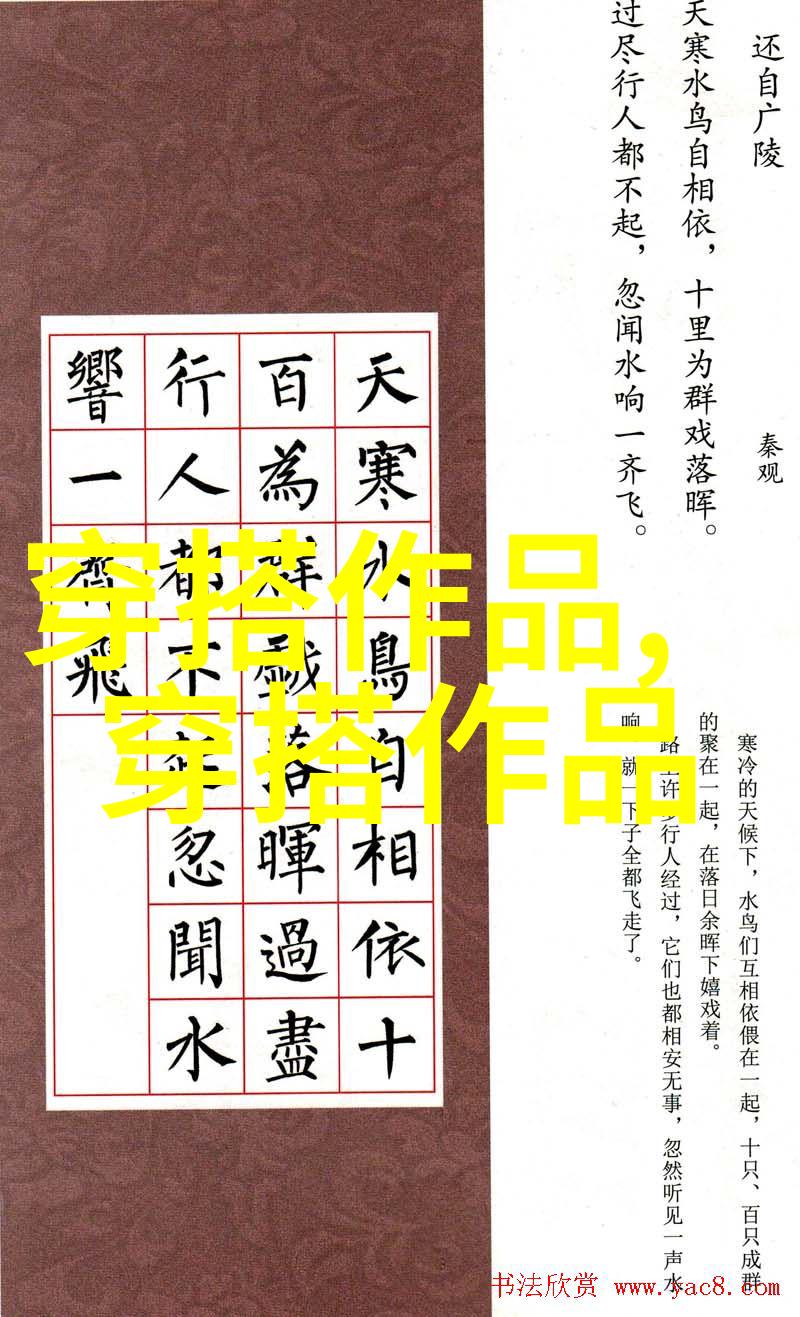 还自广陵
秦观
天寒水鸟自相依，十里为群戏落晖。
过尽行人都不起，忽闻水响一齐飞。
天寒水鳥自相依十
百為群戲落暉過盡
行人都不起忽聞水
響一齊飛
穿搭作品,
穿搭作品
寒冷的天候下，水鸟们互相依偎在一起，十只、百只成群
的聚在一起，在落日余晖下嬉戏着。
路许多行人经过，它们也都相安无事，忽然听见一声水
响就一下子全都飞走了。
书法欣赏 www.yac8.com